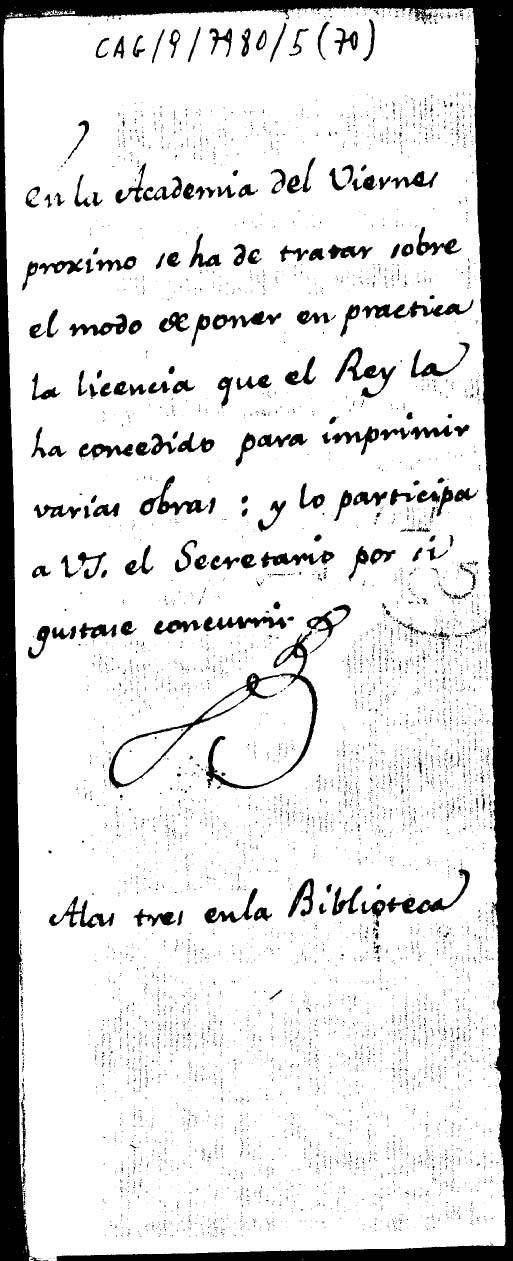 CAG/9/7980/5(70)
En la Academia del Viernes
proximo se ha de tratar sobre
el modo de poner en practica
la licencia que el Rey la
ha concedido para imprimir
varias obras : y lo participa
a VS. el Secretario por si
gustase concurrir
Alas tres enla Biblioteca